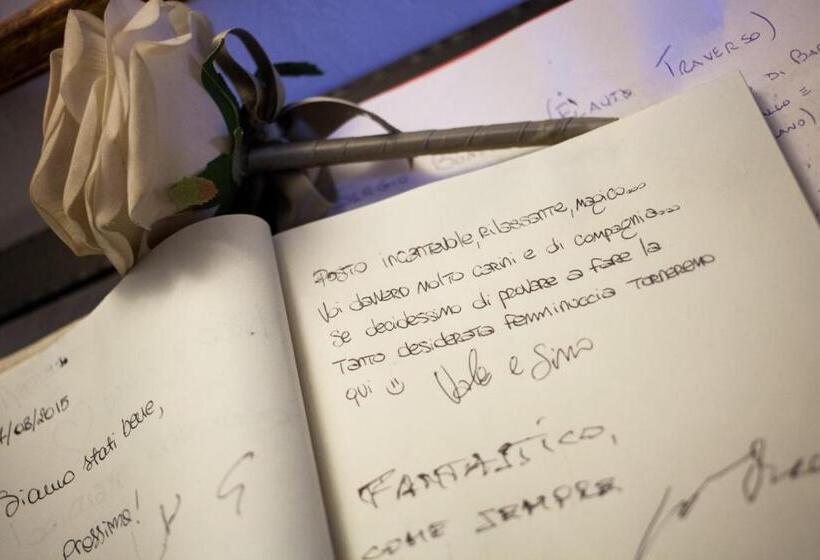 TRAVERSO)
FLAVIO
DI BAR
7/08/2015
Siamo stati bene,
prossima!
Posto incantevole, rilassante, magico...
Voi davvero molto carini e di compagnia...
Se decidessimo di provare a fare la
tanto desiderata femminuccia torneremo
qui
Vale e Simo
FANTASTICO,
COME SEMPRE